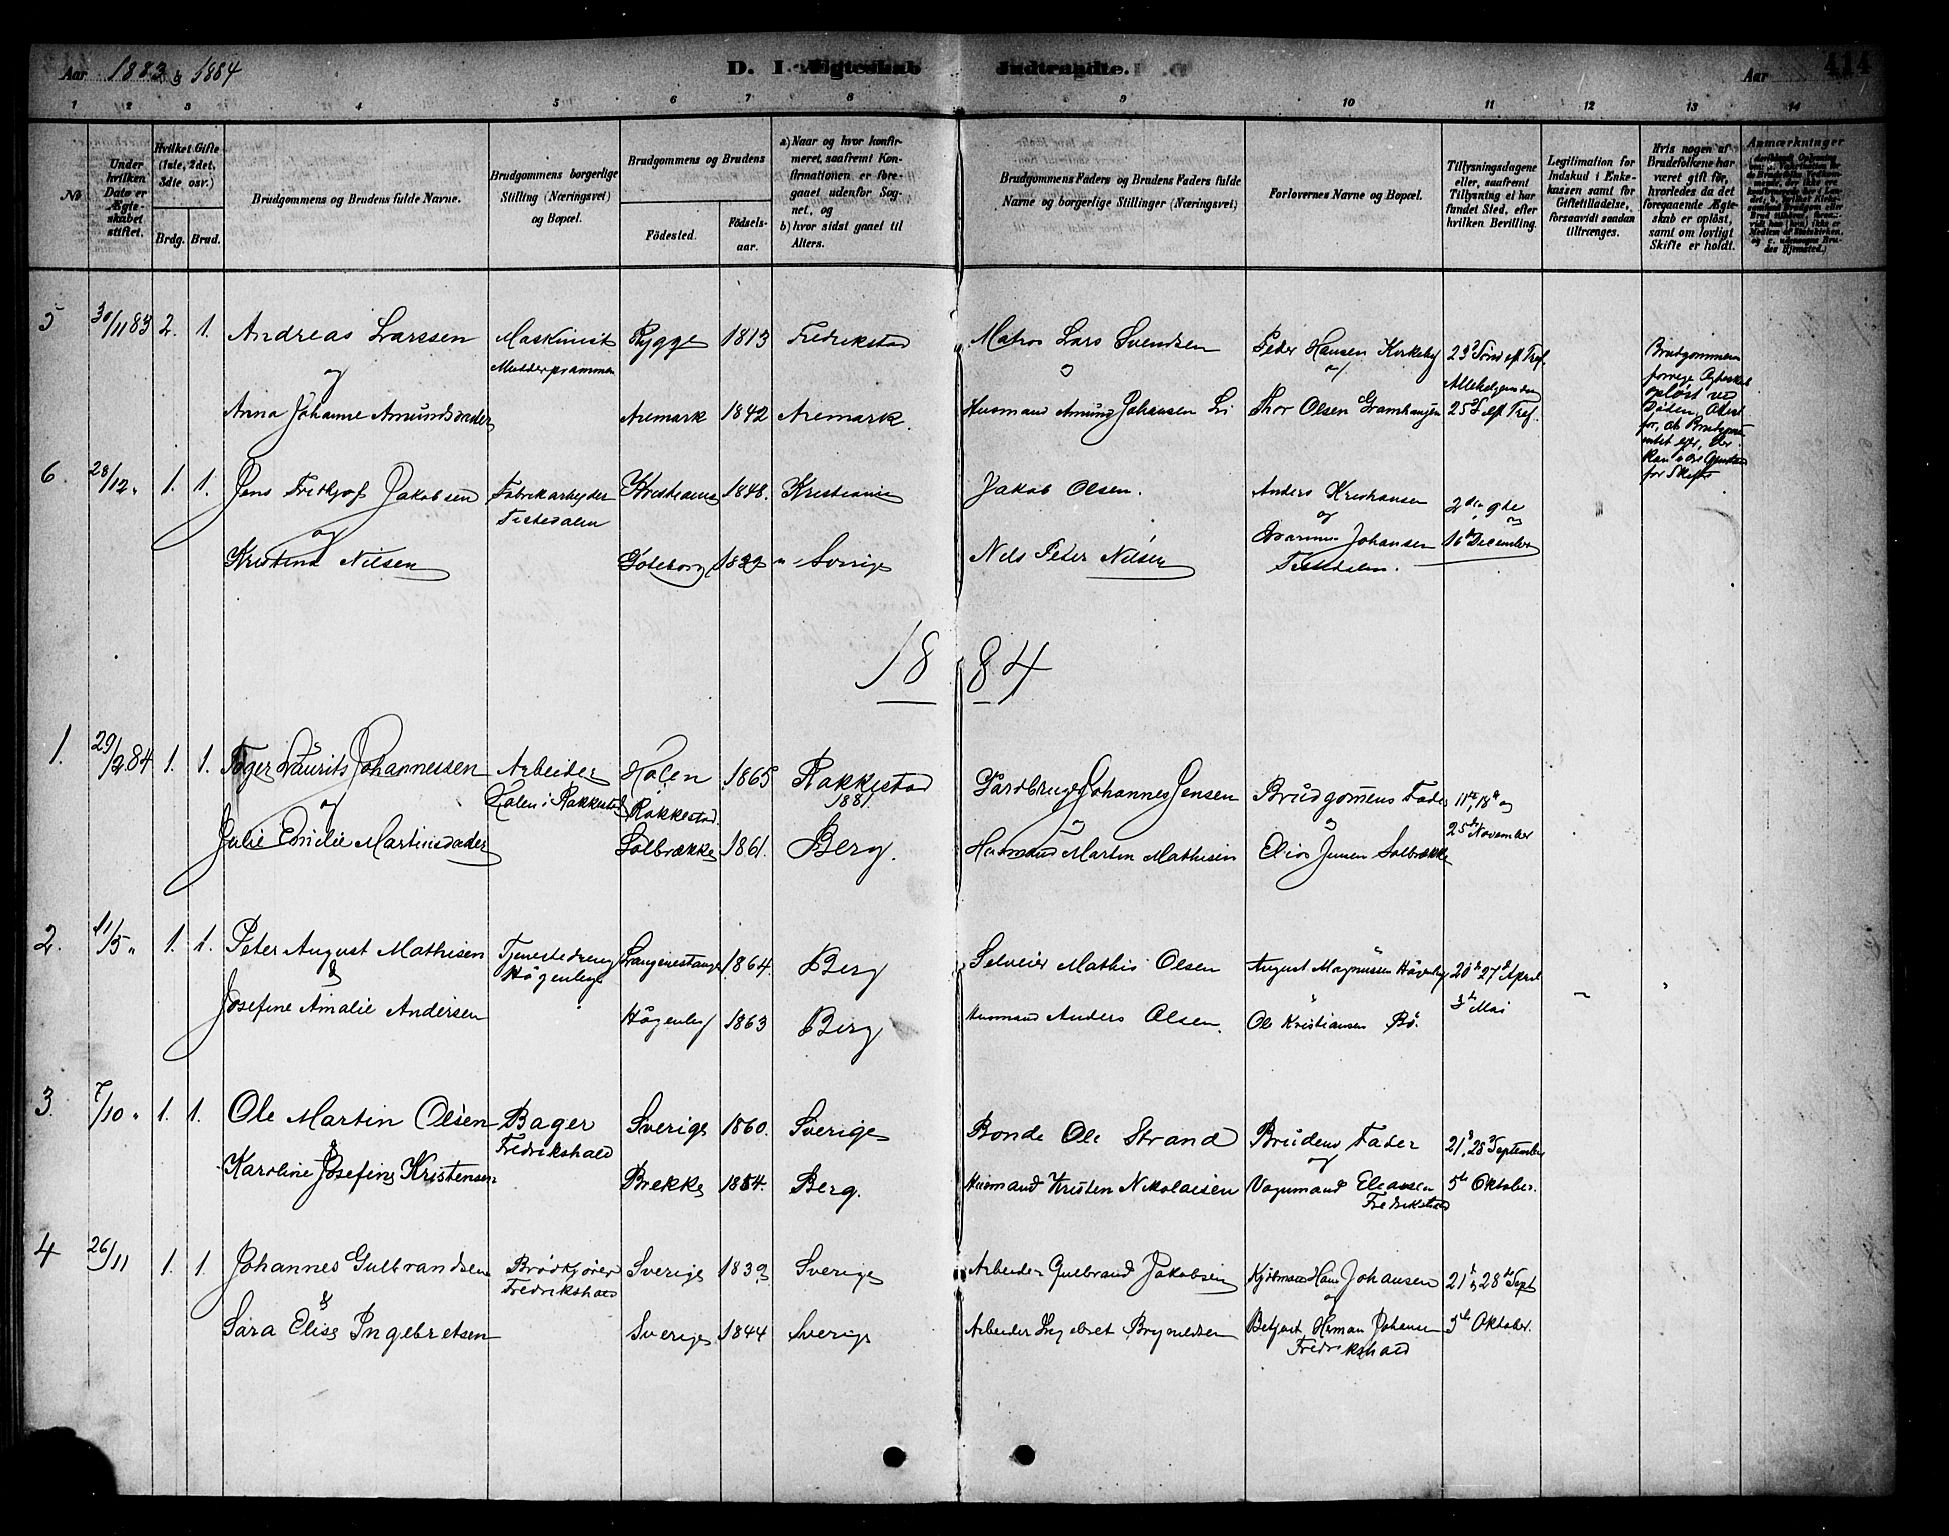 Aar 1883 & 1884 D. I Ægteskab Indtraadte. Aar 414
1 2 3 4 5 6 7 8 9 10 11 12 13 14
No
Under hvilken Dato er Ægteskabet stiftet.
Hvilket Gifte (1ste, 2det, 3die osv.)
Brdg. Brud.
Brudgommens og Brudens fulde Navne.
Brudgommens borgerlige Stilling (Næringsvei) og Bopæl.
Brudgommens og Brudens
Fødested. Fødselsaar.
a) Naar og hvor konfirmeret, saafremt Konfirmationen er foregaaet udenfor Sognet, og
b) hvor sidst gaaet til Alters.
Brudgommens Faders og Brudens Faders fulde Navne og borgerlige Stillinger (Næringsvei)
Forlovernes Navne og Bopæl.
Tillysningsdagene eller, saafremt Tillysning ei har fundet Sted, efter hvilken Bevilling.
Legitimation for Indskud i Enkekassen samt for Giftetilladelse, forsaavidt saadan tiltrænges.
Hvis nogen af Brudefolkene har været gift før, hvorledes da det foregaaende Ægteskab er opløst, samt om lovligt Skifte er holdt.
Anmærkninger
5 30/11 83 2. 1. Andreas Larssen Maskinist Rygge 1813 Fredrikstad Matros Lars Svendsen Peder Hansen Kirkeby 23d Sönd ef Tref.
og Mudderprammen og og Allehelgensdag
Anna Johanne Amundsdader Aremark 1842 Aremark. Husmand Amund Johansen Li Thor Olsen 25d S. eft Tref.
Brudgommens
forrige Ægteskab
opløst ved
Døden
for Skifte
6. 28/12 „ 1. 1. Jens Fridtjof Jakobsen Fabrikarbeider Kristiania 1848. Kristiania Jakob Olsen. Anders Kristiansen 2den 9de
og Tistedalen og og
Kristina Nilsen Gøteborg 1839 „ Sverige Nils Peter Nilsen Johansen 16de December
Tistedalen.
1884
1. 29/2 84 1. 1. Laurits Johannessen Arbeider Holen 1865 Rakkestad Johannes Jensen Brudgomens Fader 11te, 18de og
og Holen i Rakkestad Rakkestad. 1881. og og 25de November
Julie Emilie Martinsdader Solbrække 1861. Berg. Husmand Martin Mathisen Elias Jensen Solbrække
2. 11/5 „ 1. 1. Peter August Mathisen Tjenestedreng Langenestangen 1864. Berg Selveier Mathis Olsen August Magnussen Högenby 20de 27de April
& Högenby 3de Mai
Josefine Amalie Andersen Högenby 1863 Berg Husmand Anders Olsen. Ole Kristiansen Bö.
3 7/10 „ 1. 1. Ole Martin Olsen Bager Sverige 1860. Sverige Bonde Ole Strand Brudens Fader 21d, 28d September
& Fredrikshald og
Karoline Josefine Kristensen Brekke 1854. Berg. Husmand Kristen Nikolaisen Vognmand Eleasen 5te Oktober.
Fredrikstad
4 26/11 1. 1. Johannes Gulbrandsen Brödkjörer Sverige 1839 Sverige Arbeider Gulbrand Jakobsen Kjöbmand Hans Johansen 21de, 28de Sept
& Fredrikshald og
Sara Elise Ingebretsen Sverige 1844 Sverige Arbeider Ingebret Brynildsen Betjent Herman Johansen 5te Oktober.
Fredrikshald